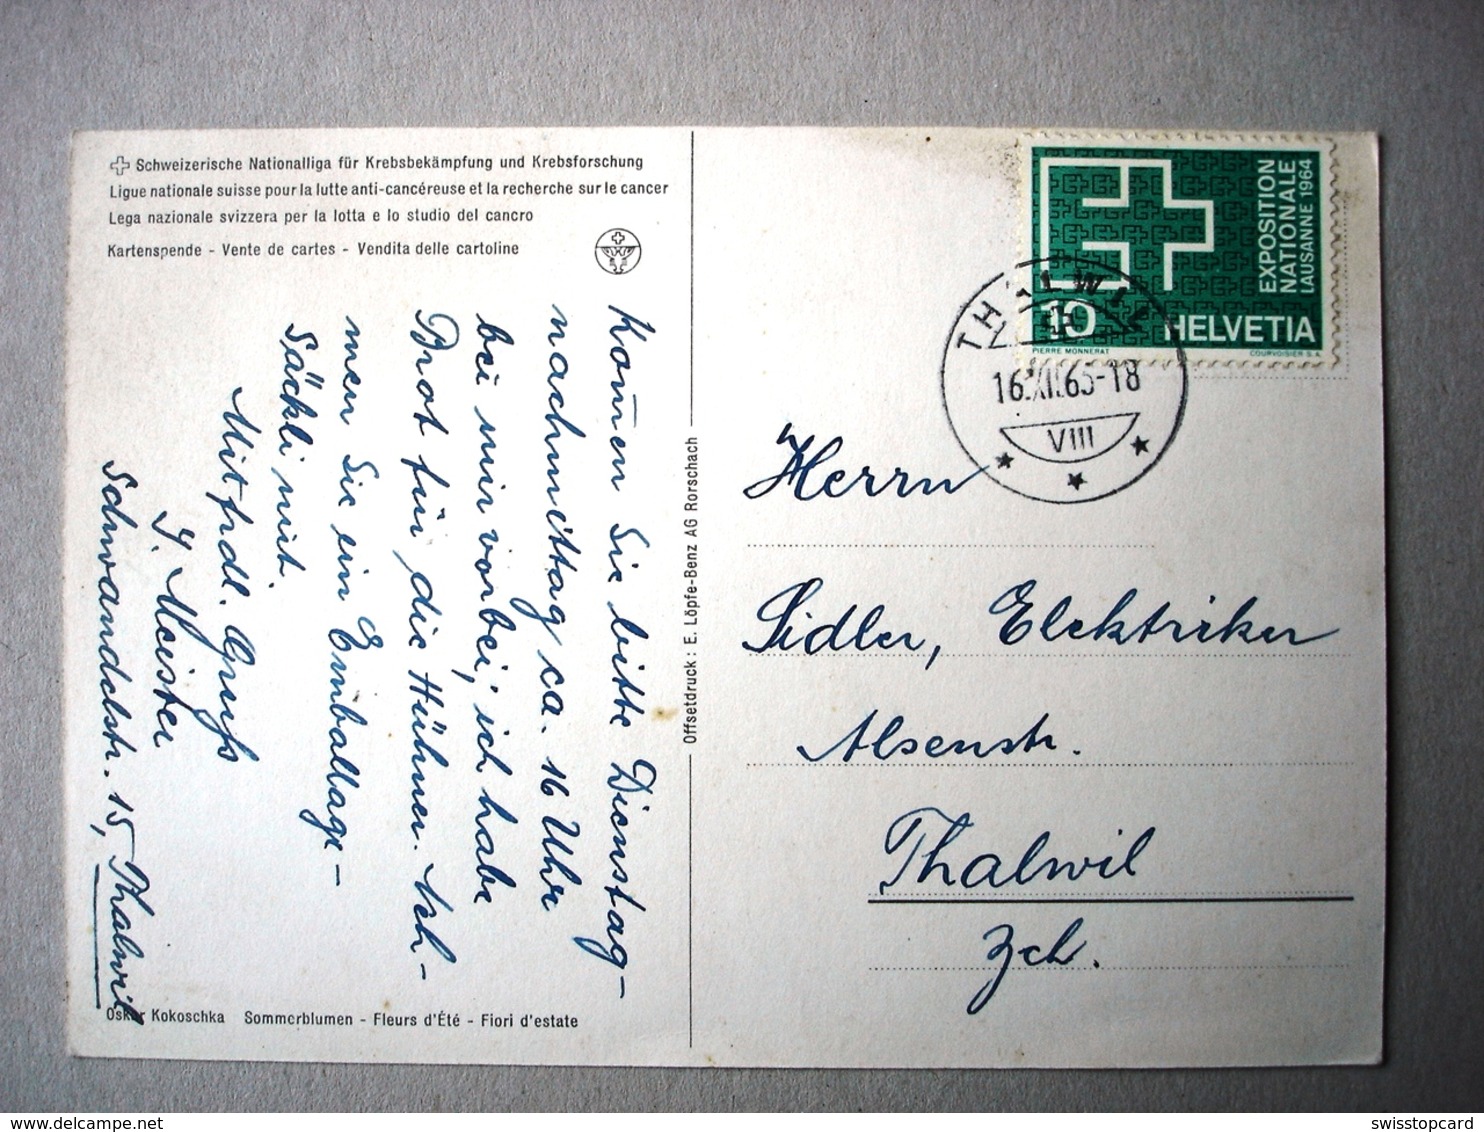 Schweizerische Nationalliga für Krebsbekämpfung und Krebsforschung
Ligue nationale suisse pour la lutte anti-cancéreuse et la recherche sur le cancer
Lega nazionale svizzera per la lotta e lo studio del cancro
Kartenspende - Vente de cartes - Vendita delle cartoline
Kom̄en Sie bitte Dienstag-
nachmittag ca. 16 Uhr
bei mir vorbei; ich habe
Brot für die Hühner. Neh-
men Sie ein Emballage-
Säckli mit.
Mit frdl. Gruss
J. Meister
Schwandelstr. 15, Thalwil
Oskar Kokoschka Sommerblumen - Fleurs d'Été - Fiori d'estate
Offsetdruck: E. Löpfe-Benz AG Rorschach
EXPOSITION
NATIONALE
LAUSANNE 1964
10 HELVETIA
PIERRE MONNERAT COURVOISIER S.A.
THALWIL
16.XII.65-18
VIII
Herrn
Sidler, Elektriker
Alsenstr.
Thalwil
Zch.
swisstopcard
delcampe.net